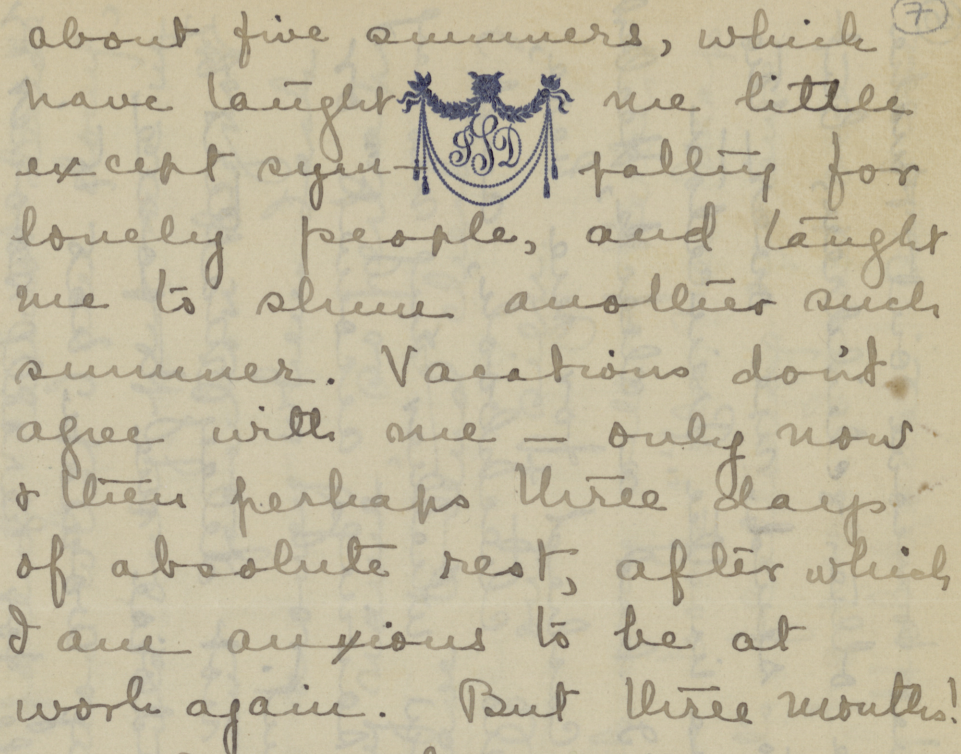 7
about five summers, which
have taught me little
except sym- pathy for
lonely people, and taught
me to shun another such
summer. Vacations don't
agree with me — only now
& then perhaps three days
of absolute rest, after which
I am anxious to be at
work again. But three months!